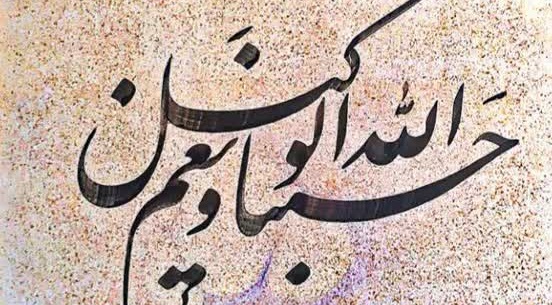 حسبنا الله ونعم الوکیل